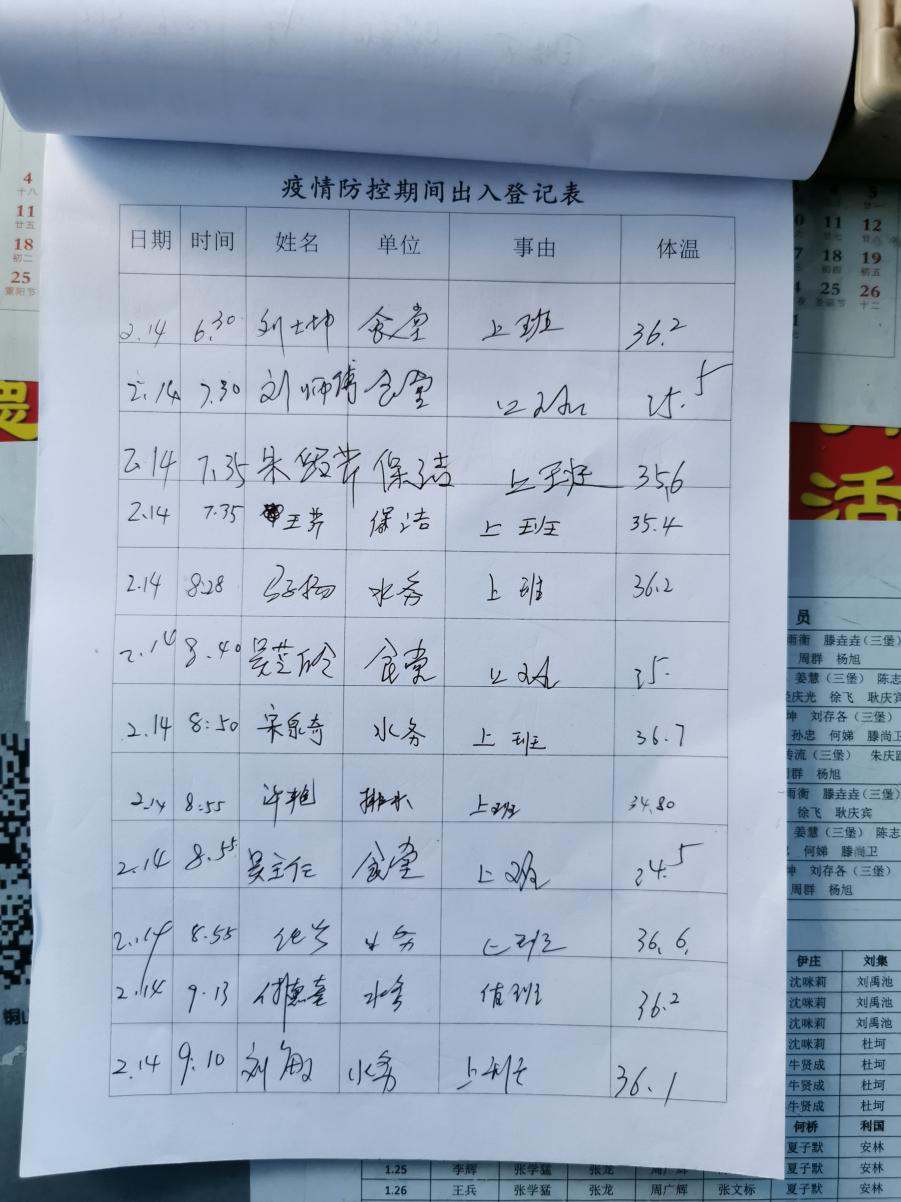 疫情防控期间出入登记表
日期 时间 姓名 单位 事由 体温
2.14 6.30 刘士坤 食堂 上班 36.2
2.14 7.30 刘师傅 食堂 上班 35.5
2.14 7.35 朱 保洁 上班 35.6
2.14 7.35 王芹 保洁 上班 35.4
2.14 8:28 杨 水务 上班 36.2
2.14 8.40 吴芝玲 食堂 上班 35.
2.14 8:50 宋泉奇 水务 上班 36.7
2.14 8:55 许艳 排水 上班 34.80
2.14 8.55 吴主任 食堂 上班 34.5
2.14 8.55 水务 上班 36.6.
2.14 9.13 水务 值班 36.2
2.14 9:10 刘敏 水务 上班 36.1
4
十八
11
廿五
18
初二
25
重阳节
5
11 12
17 18 19
初四 初五
26
十二
活
员
雨衡 滕垚垚(三堡)
周群 杨旭
姜慧(三堡) 陈志
庆光 徐飞 耿庆宾
坤 刘存各(三堡)
孙忠 何娣 滕尚卫
传流(三堡) 朱庆
周群 杨旭
雨衡 滕垚垚(三堡)
徐飞 耿庆宾
姜慧(三堡) 陈志
何娣 滕尚卫
坤 刘存各(三堡)
周群 杨旭
伊庄 刘集
沈咪莉 刘禹池
沈咪莉 刘禹池
沈咪莉 刘禹池
沈咪莉 杜坷
牛贤成 杜坷
牛贤成 杜坷
牛贤成 杜坷
何桥 利国
夏子默 安林
1.25 李辉 张学猛 张龙 周广辉 夏子默 安林
1.26 王兵 张学猛 张龙 周广辉 张文标 夏子默 安林
铜山